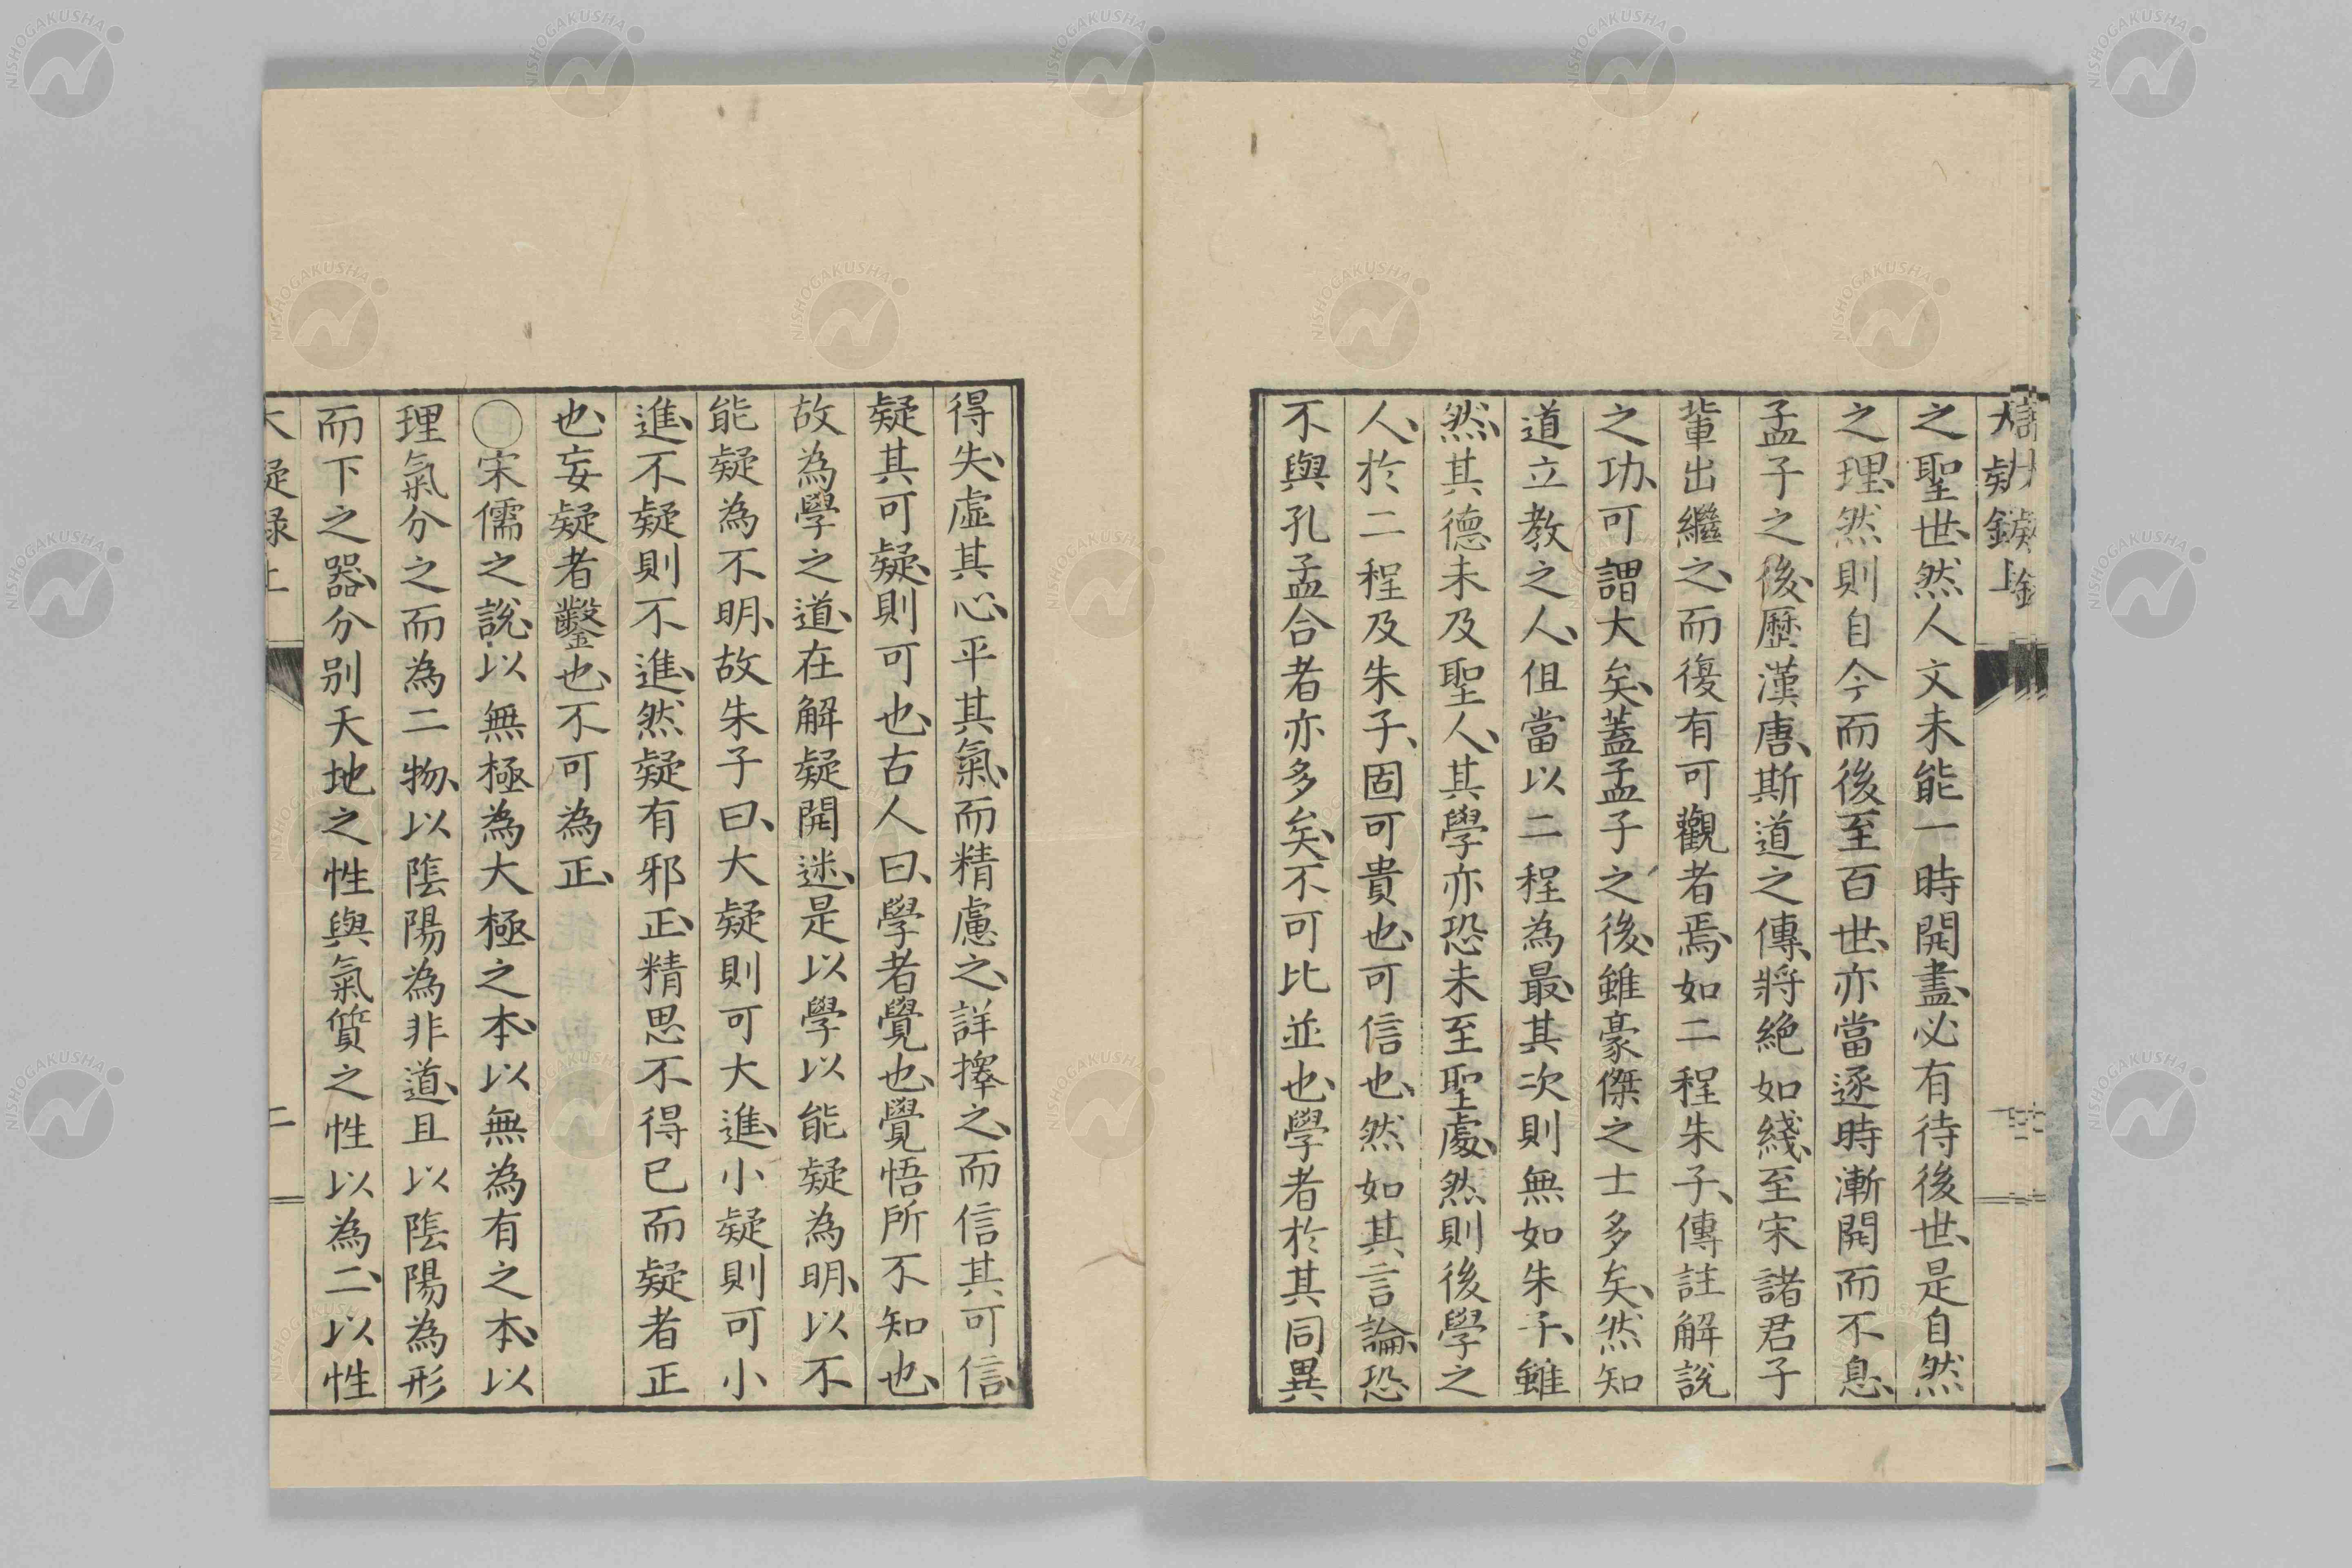 大疑錄上
之聖世、然人文未能一時開盡、必有待後世、是自然
之理、然則自今而後至百世、亦當逐時漸開而不息、
孟子之後、歷漢唐、斯道之傳、將絶如綫、至宋諸君子
輩出繼之、而復有可觀者焉、如二程朱子、傳註解說
之功、可謂大矣、蓋孟子之後、雖豪傑之士多矣、然知
道立教之人、但當以二程為最、其次則無如朱子、雖
然、其德未及聖人、其學亦恐未至聖處、然則後學之
人、於二程及朱子、固可貴也、可信也、然如其言論、恐
不與孔孟合者亦多矣、不可比並也、學者於其同異
得失、虛其心、平其氣、而精慮之、詳擇之、而信其可信、
疑其可疑、則可也、古人曰、學者覺也、覺悟所不知也、
故為學之道、在解疑開迷、是以學以能疑為明、以不
能疑為不明、故朱子曰、大疑則可大進、小疑則可小
進、不疑則不進、然疑有邪正、精思不得已而疑者正
也、妄疑者鑿也、不可為正、
○宋儒之說、以無極為大極之本、以無為有之本、以
理氣分之而為二物、以陰陽為非道、且以陰陽為形
而下之器、分別天地之性與氣質之性以為二、以性
大疑錄上
二
NISHOGAKUSHA